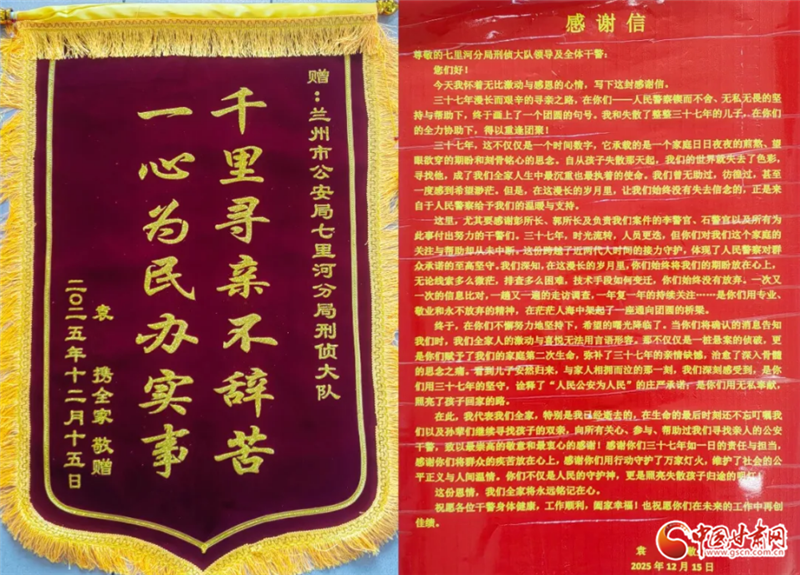 赠：兰州市公安局七里河分局刑侦大队
千里寻亲不辞苦
一心为民办实事
袁 携全家 敬赠
二〇二五年十二月十五日
感谢信
尊敬的七里河分局刑侦大队领导及全体干警：
您们好！
今天我怀着无比激动与感恩的心情，写下这封感谢信。
三十七年漫长而艰辛的寻亲之路，在你们——人民警察锲而不舍、无私无畏的坚
持与帮助下，终于画上了一个团圆的句号。我和失散了整整三十七年的儿子，在你们
的全力协助下，得以重逢团聚！
三十七年，这不仅仅是一个时间数字，它承载的是一个家庭日日夜夜的煎熬、望
眼欲穿的期盼和刻骨铭心的思念。自从孩子失散那天起，我们的世界就失去了色彩，
寻找他，成了我们全家人生中最沉重也最执着的使命。我们曾无助过，彷徨过，甚至
一度感到希望渺茫。但是，在这漫长的岁月里，让我们始终没有失去信念的，正是来
自于人民警察给予我们的温暖与支持。
这里，尤其要感谢彭所长、郭所长及负责我们案件的李警官、石警官以及所有为
此事付出努力的干警们，三十七年，时光流转，人员更迭，但你们对我们这个家庭的
关注与帮助却从未中断，这份跨越了近两代人时间的接力守护，体现了人民警察对群
众承诺的至高坚守。我们深知，在这漫长的岁月里，你们始终将我们的期盼放在心上，
无论线索多么微茫，排查多么困难，技术手段如何变迁，你们始终没有放弃。一次又
一次的信息比对，一趟又一趟的走访调查，一年复一年的持续关注……是你们用专业、
敬业和永不放弃的精神，在茫茫人海中架起了一座通向团圆的桥梁。
终于，在你们不懈努力地坚持下，希望的曙光降临了。当你们将确认的消息告知
我们时，我们全家人的激动与喜悦无法用言语形容。那不仅仅是一桩悬案的侦破，更
是你们赋予了我们的家庭第二次生命，弥补了三十七年的亲情缺憾，治愈了深入骨髓
的思念之痛。看到儿子安然归来，与家人相拥而泣的那一刻，我们深刻感受到，是你
们用三十七年的坚守，诠释了“人民公安为人民”的庄严承诺，是你们用无私奉献，
照亮了孩子回家的路。
在此，我代表我们全家，特别是我已经逝去的，在生命的最后时刻还不忘叮嘱我
们以及孙辈们继续寻找孩子的双亲，向所有关心、参与、帮助过我们寻找亲人的公安
干警，致以最崇高的敬意和最衷心的感谢！感谢你们三十七年如一日的责任与担当，
感谢你们将群众的疾苦放在心上，感谢你们用行动守护了万家灯火，维护了社会的公
平正义与人间温情。你们不仅是人民的守护神，更是照亮失散孩子归途的
这份恩情，我们全家将永远铭记在心。
祝愿各位干警身体健康，工作顺利，阖家幸福！也祝愿你们在未来的工作中再创
佳绩。
袁 敬
2025年12月15日
中国甘肃网
www.gscn.com.cn